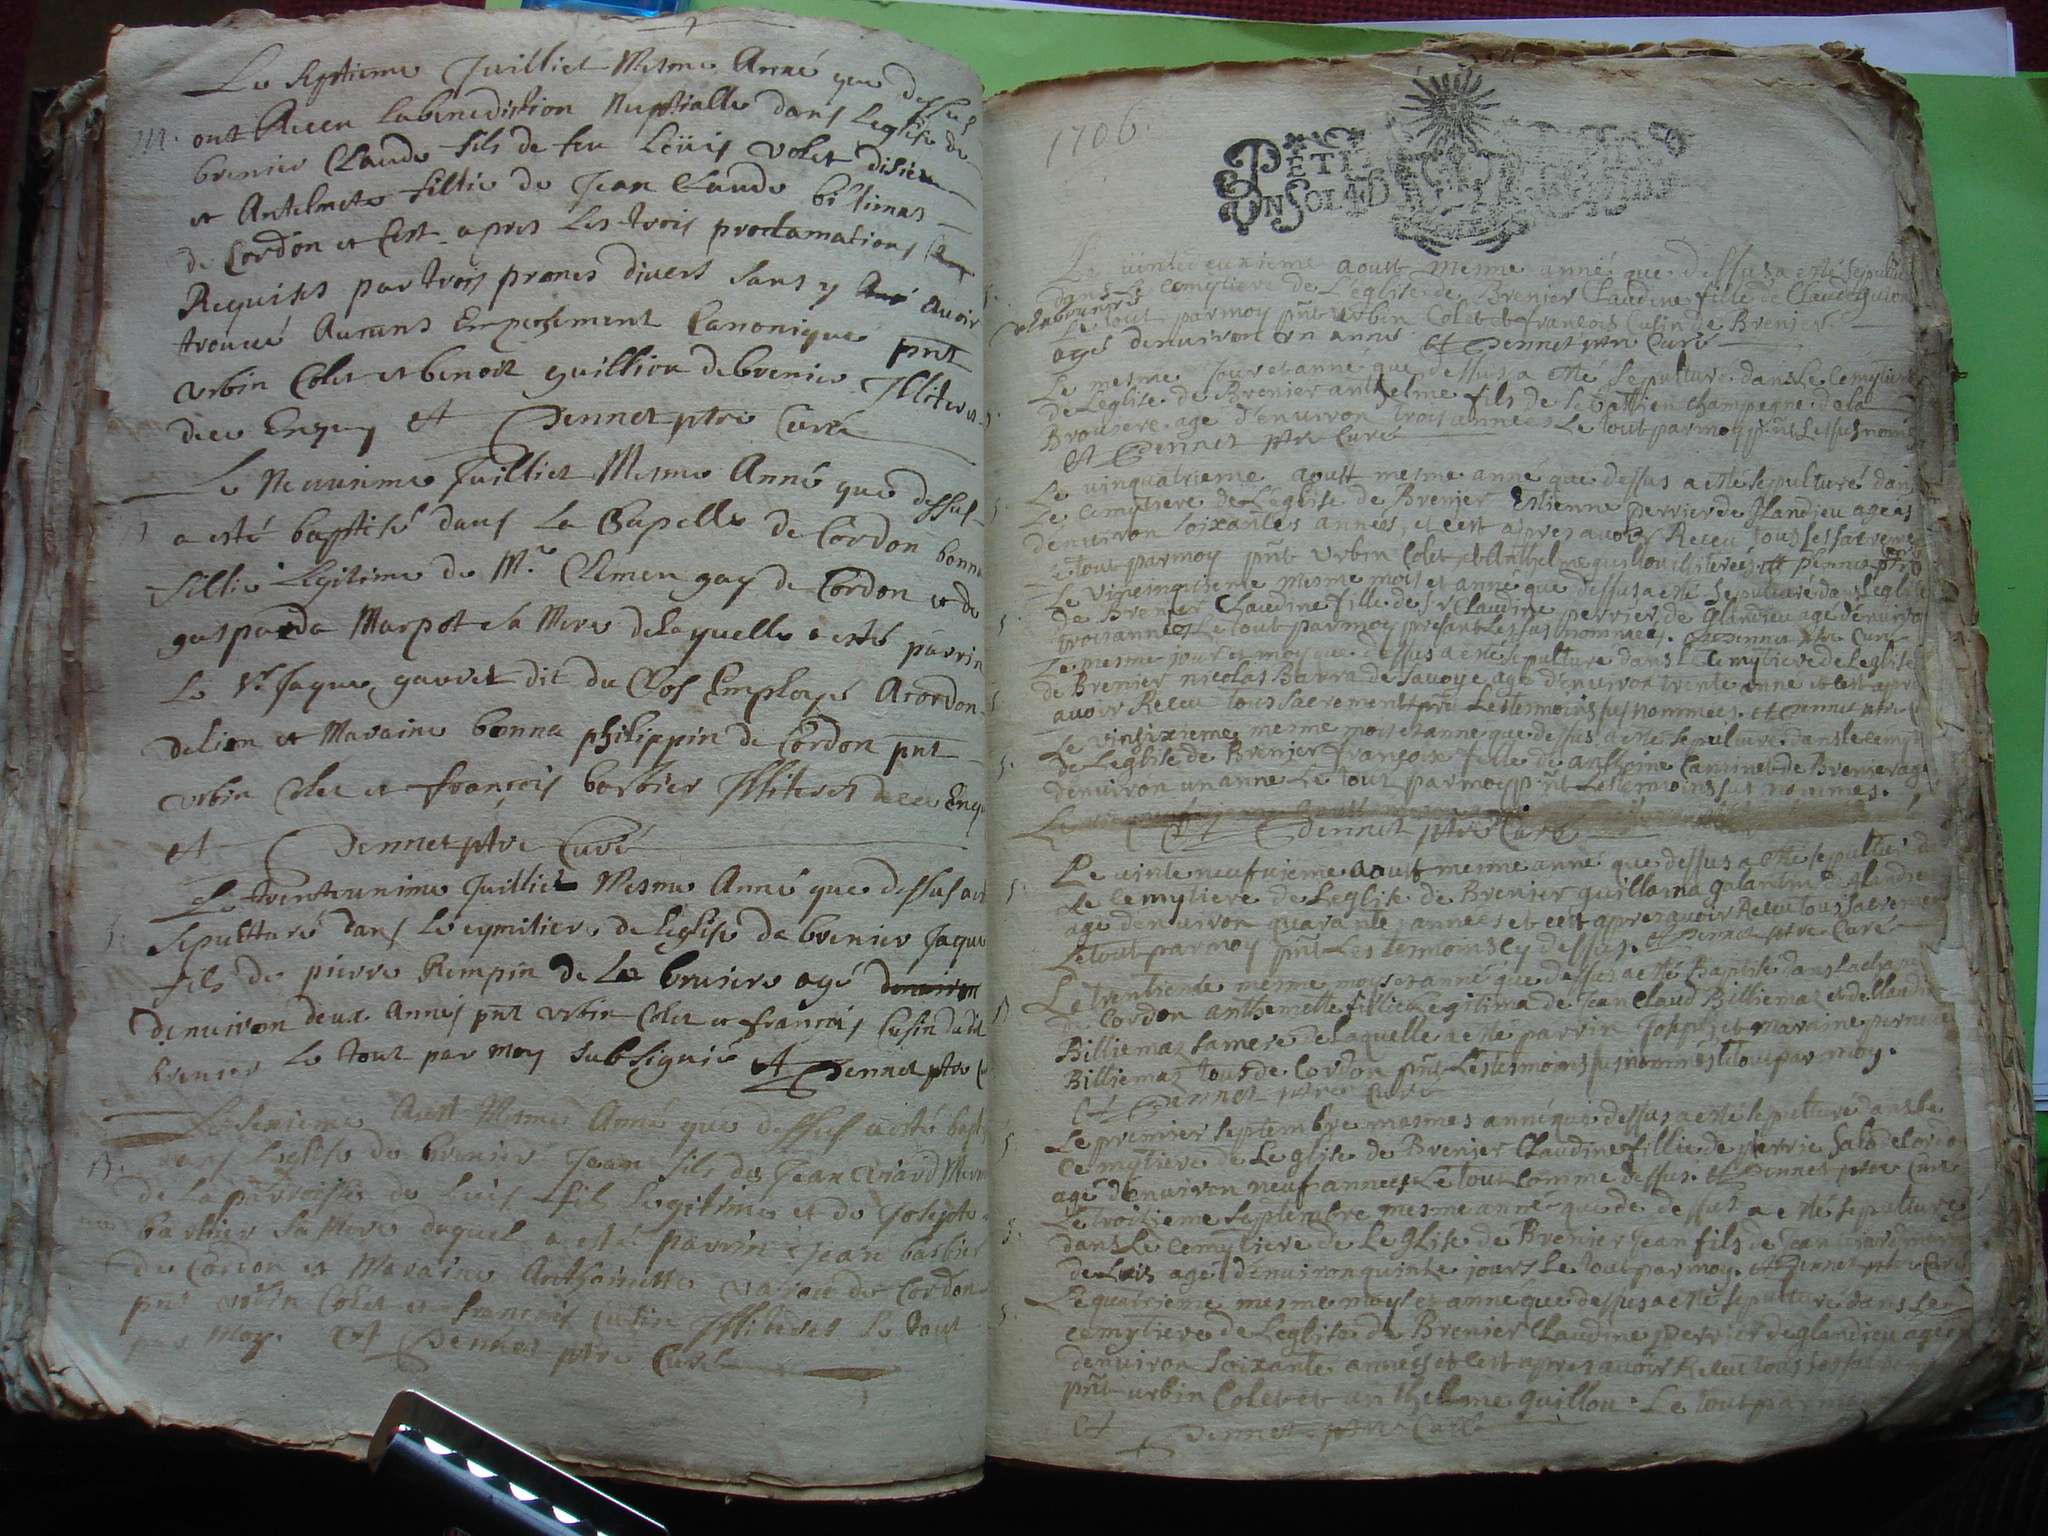 Le Septieme Juilliet Mesme Anné que dessus
M. ont Receu la benediction Nuptialle dans Leglise de
brenier Claude fils de feu Loüis Volet disie
et Antelmete fillie de Jean Claude billimas
de Cordon et Cest apres Les trois proclamations
Requises par trois prones divers sans y avoir
trouué Aucuns Empechement Canonique pnt
Urbin Colet et benoit guillion de brenier Illiteres
de ce Enquis et Dennet ptre Curé
Le Neuuieme Juilliet Mesme Anné que dessus
a esté baptisé dans La Chapelle de Cordon bonne
fillie Legitime de Mr. Clemen gay de Cordon et de
gasparda Marpot sa Mere de laquelle a esté parrin
Le Sr. Jaque gauret dit du Clos Employé A Cordon
et Maraine bonna philippin de Cordon pnt
Urbin Colet et françois barbier Illiteres de ce Enquis
et Dennet ptre Curé
Le trenteunime Juilliet Mesme Anné que dessus a esté
S. Sepulturé dans Le cymitiere de Leglise de brenier Jaque
fils de pierre Rempin de La brusiere agé
denuiron deux Annés pnt Urbin Colet et françois Cusin dudit
brenier Le tout par moy subsigné et Dennet ptre
Aust Mesme Anné que dessus a esté
B. dans Leglise de brenier Jean fils de Jean
de La parroisse de Luis fils Legitime et de Josepte
barbier sa Mere duquel a esté parrin Jean barbier
de Cordon et Maraine Anthoinette de Cordon
pnt Urbin Colet et françois Cusin Illiteres Le tout
par Moy. et Dennet ptre Curé
1706.
Le uintedeuxieme aoust mesme anné que dessus a esté sepulturé
dans Le Cemytiere de L'eglise de Brenier Claudine fille de Claude guion
Le tout par moy pnt Urbin Colet et francois Cusin de Brenier
agé denuiron un anné et Dennet ptre Curé
Le mesme Jour et anné que dessus a esté Sepulturé dans Le Cemytiere
de Leglise de Brenier anthelme fils de Sebattien Champagne de La
Brousere agé d'enuiron trois années Le tout par moy pnt Les susnomés
et Dennet ptre Curé
S. Le uinquatrieme aoust mesme anné que dessus a esté sepulturé dans
Le Cemytiere de L'eglise de Brenier Estienne perrier de Glandieu agé
denuiron soixantes années, et cest apres auoir Receu tous Les sacremens
Le tout par moy pnt Urbin Colet et Anthelme guillou illiteréz et Dennet ptre
Le vincinquieme mesme mois et anné que dessus a esté Sepulturé dans Leglise
S. de Brenier Claudine fille de Sr Claudine perrier de Glandieu agé d'enuiron
trois années Le tout par moy present Les susnommées. et Dennet ptre Curé
Le mesme jour et moy que dessus a esté sepulturé dans Le Cemytiere de Leglise
de Brenier nicolas Barra de Savoye, agé d'enuiron trente anné et cest apres
auoir Receu tous Sacrement pnt Les tesmoins susnommées. et Dennet ptre
Le vinsixieme mesme mois et anné que dessus a esté Sepulturé dans Le Cemytiere
S. de Leglise de Brenier francoise fille de anthoine Caminet de Brenier agé
denuiron un anné Le tout par moy pnt Les tesmoins sus nommés.
Dennet ptre Curé
Le uinte neufuieme aoust mesme anné que dessus a esté sepulturé
S. Le Cemytiere de Leglise de Brenier guillaina galantin
agé denuiron quarante années et cest apres auoir Receu tous Sacremens
Le tout par moy pnt Les tesmoins cy dessus. et Dennet ptre Curé
B. Le trentieme mesme moys et anné que dessus a esté Baptisé dans La chapelle
de Cordon anthemette fillie Legitima de Jean Claud Billiemaz et de Claudine
Billiemaz sa mere de Laquelle a esté parrin Joseph et maraine pernette
Billiemaz tous de Cordon pnt Les tesmoins susnommés Le tout par moy.
et Dennet ptre Curé
S. Le premier Septembre mesmes anné que dessus a esté sepulturé dans Le
Cemytiere de Leglise de Brenier Claudine fillie de pierrie Sala de Cordon
agé d'enuiron neuf années Le tout Comme dessus. et Dennet ptre Curé
S. Le troisieme Septembre mesme anné que de dessus a esté sepulturé
dans Le Cemytiere de Leglise de Brenier Jean fils de Jean
de Luis agé d'enuiron quinte jours Le tout par moy. et Dennet ptre Curé
S. Le quatrieme mesme moys et anné que dessus a esté sepulturé dans Le
Cemytiere de Leglise de Brenier Claudine perrier de glandieu agé
denuiron soixante années et cest apres auoir Receu tous Les sacremens
pnt urbin Colet et anthelme guillou. Le tout par moy
et Dennet ptre Curé